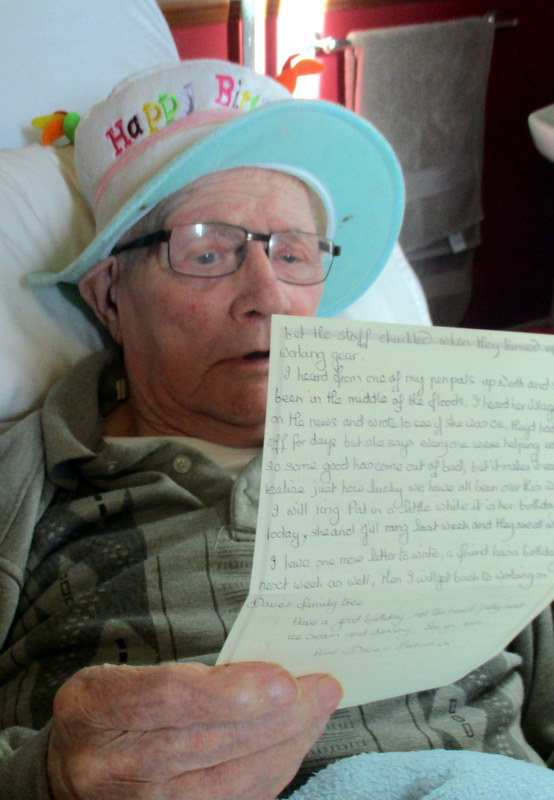 Happy Birt
bet the staff chuckled when they turned
working gear.
I heard from one of my penpals up North and
been in the middle of the floods, I heard her village
on the news and wrote to see if she was ok, they'd had
off for days but she says everyone were helping
so some good has come out of bad, but it makes
realise just how lucky we have all been over this
I will ring Pat in a little while it is her birthday
today, she and Gill rang last week and they
I have one more letter to write, a friend has a birthday
next week as well, then I will get back to working on
Daves family tree.
Have a good birthday, not too much jelly and
ice cream and
love